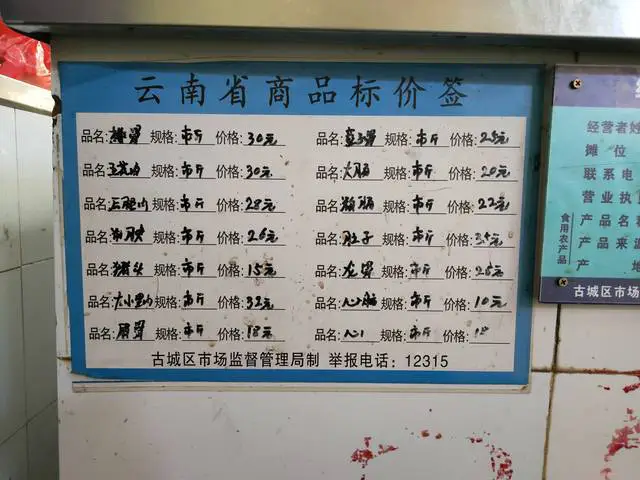 云南省商品标价签
品名:排骨 规格:市斤 价格:30元 品名: 规格:市斤 价格:25元
品名: 规格:市斤 价格:30元 品名:大肠 规格:市斤 价格:20元
品名: 规格:市斤 价格:28元 品名: 规格:市斤 价格:22元
品名: 规格:市斤 价格:26元 品名:肚子 规格:市斤 价格:35元
品名:猪头 规格:市斤 价格:15元 品名:龙骨 规格:市斤 价格:26元
品名:大小里肉 规格:市斤 价格:32元 品名:心肺 规格:市斤 价格:10元
品名:扇骨 规格:市斤 价格:18元 品名:心 规格:市斤 价格:18
古城区市场监督管理局制 举报电话:12315
经营者姓
摊 位
联系电
营业执
食用农产品
产品名称
产品来源
产 地
古城区市场